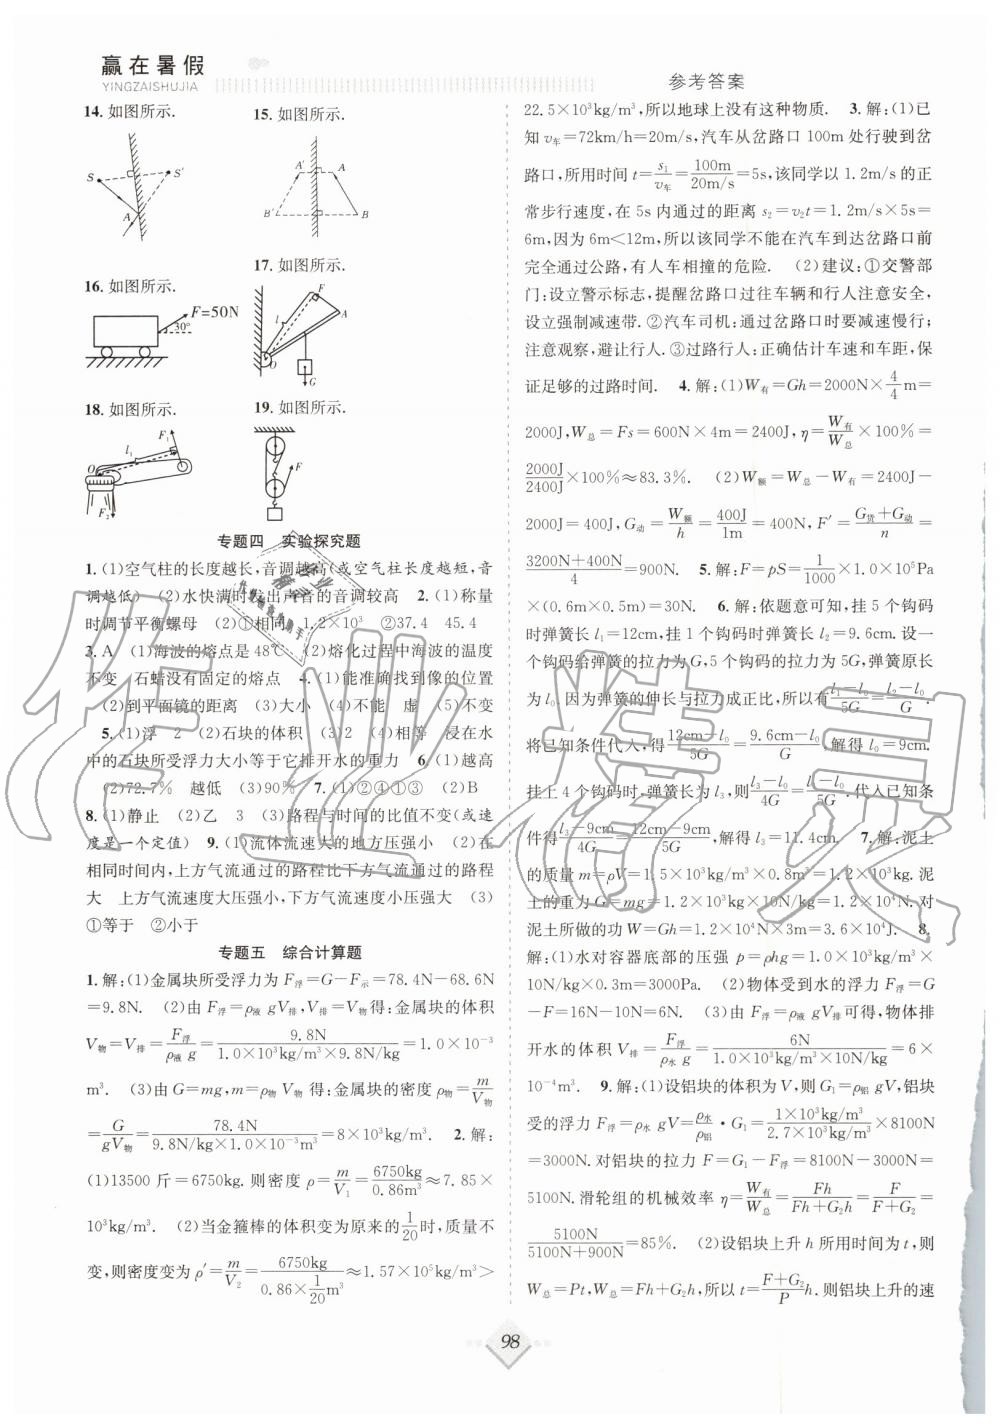 赢在暑假
YINGZAISHUJIA
参考答案
14. 如图所示.
15. 如图所示.
S
S′
A
A′
A
B′
B
16. 如图所示.
17. 如图所示.
F=50N
30°
F
l
A
O
G
18. 如图所示.
19. 如图所示.
F₁
l₁
O
F₂
F
专题四 实验探究题
1. (1)空气柱的长度越长,音调越高(或空气柱长度越短,音
调越低) (2)水快满时发出声音的音调较高 2. (1)称量
时调节平衡螺母 (2)①相同 1.2×10³ ②37.4 45.4
3. A (1)海波的熔点是48℃ (2)熔化过程中海波的温度
不变 石蜡没有固定的熔点 4. (1)能准确找到像的位置
(2)到平面镜的距离 (3)大小 (4)不能 虚 (5)不变
5. (1)浮 2 (2)石块的体积 (3)2 (4)相等 浸在水
中的石块所受浮力大小等于它排开水的重力 6. (1)越高
(2)72.7% 越低 (3)90% 7. (1)②④①③ (2)B
8. (1)静止 (2)乙 3 (3)路程与时间的比值不变(或速
度是一个定值) 9. (1)流体流速大的地方压强小 (2)在
相同时间内,上方气流通过的路程比下方气流通过的路程
大 上方气流速度大压强小,下方气流速度小压强大 (3)
①等于 ②小于
专题五 综合计算题
1. 解:(1)金属块所受浮力为 F浮=G-F示=78.4N-68.6N
=9.8N. (2)由 F浮=ρ液 gV排,V排=V物得:金属块的体积
V物=V排=F浮/(ρ液 g)=9.8N/(1.0×10³kg/m³×9.8N/kg)=1.0×10⁻³
m³. (3)由G=mg,m=ρ物 V物 得:金属块的密度 ρ物=m/V物
=G/(gV物)=78.4N/(9.8N/kg×1.0×10⁻³m³)=8×10³kg/m³. 2. 解:
(1)13500斤=6750kg.则密度 ρ=m/V₁=6750kg/0.86m³≈7.85×
10³kg/m³. (2)当金箍棒的体积变为原来的1/20时,质量不
变,则密度变为 ρ′=m/V₂=6750kg/(0.86×1/20 m³)≈1.57×10⁵kg/m³>
22.5×10³kg/m³,所以地球上没有这种物质. 3. 解:(1)已
知 v车=72km/h=20m/s,汽车从岔路口100m处行驶到岔
路口,所用时间 t=s₁/v车=100m/(20m/s)=5s,该同学以1.2m/s的正
常步行速度,在5s内通过的距离 s₂=v₂t=1.2m/s×5s=
6m,因为6m<12m,所以该同学不能在汽车到达岔路口前
完全通过公路,有人车相撞的危险. (2)建议:①交警部
门:设立警示标志,提醒岔路口过往车辆和行人注意安全,
设立强制减速带.②汽车司机:通过岔路口时要减速慢行;
注意观察,避让行人.③过路行人:正确估计车速和车距,保
证足够的过路时间. 4. 解:(1)W有=Gh=2000N×4/4 m=
2000J,W总=Fs=600N×4m=2400J,η=W有/W总×100%=
2000J/2400J×100%≈83.3%. (2)W额=W总-W有=2400J-
2000J=400J,G动=W额/h=400J/1m=400N,F′=(G货+G动)/n=
(3200N+400N)/4=900N. 5. 解:F=pS=1/1000×1.0×10⁵Pa
×(0.6m×0.5m)=30N. 6. 解:依题意可知,挂5个钩码
时弹簧长 l₁=12cm,挂1个钩码时弹簧长 l₂=9.6cm.设一
个钩码给弹簧的拉力为G,5个钩码的拉力为5G,弹簧原长
为 l₀.因为弹簧的伸长与拉力成正比,所以有(l₁-l₀)/5G=(l₂-l₀)/G.
将已知条件代入,得(12cm-l₀)/5G=(9.6cm-l₀)/G.解得 l₀=9cm.
挂上4个钩码时,弹簧长为 l₃,则(l₃-l₀)/4G=(l₁-l₀)/5G.代入已知条
件得(l₃-9cm)/4G=(12cm-9cm)/5G,解得 l₃=11.4cm. 7. 解:泥土
的质量 m=ρV=1.5×10³kg/m³×0.8m³=1.2×10³kg.泥
土的重力 G=mg=1.2×10³kg×10N/kg=1.2×10⁴N.对
泥土所做的功 W=Gh=1.2×10⁴N×3m=3.6×10⁴J. 8.
解:(1)水对容器底部的压强 p=ρhg=1.0×10³kg/m³×
10N/kg×0.3m=3000Pa. (2)物体受到水的浮力 F浮=G
-F=16N-10N=6N. (3)由 F浮=ρ液 gV排可得,物体排
开水的体积 V排=F浮/(ρ水 g)=6N/(1.0×10³kg/m³×10N/kg)=6×
10⁻⁴m³. 9. 解:(1)设铝块的体积为V,则 G₁=ρ铝 gV,铝块
受的浮力 F浮=ρ水 gV=ρ水/ρ铝·G₁=(1×10³kg/m³)/(2.7×10³kg/m³)×8100N
=3000N.对铝块的拉力 F=G₁-F浮=8100N-3000N=
5100N.滑轮组的机械效率 η=W有/W总=Fh/(Fh+G₂h)=F/(F+G₂)=
5100N/(5100N+900N)=85%. (2)设铝块上升 h 所用时间为 t,则
W总=Pt,W总=Fh+G₂h,所以 t=(F+G₂)/P h.则铝块上升的速
98
作业精灵